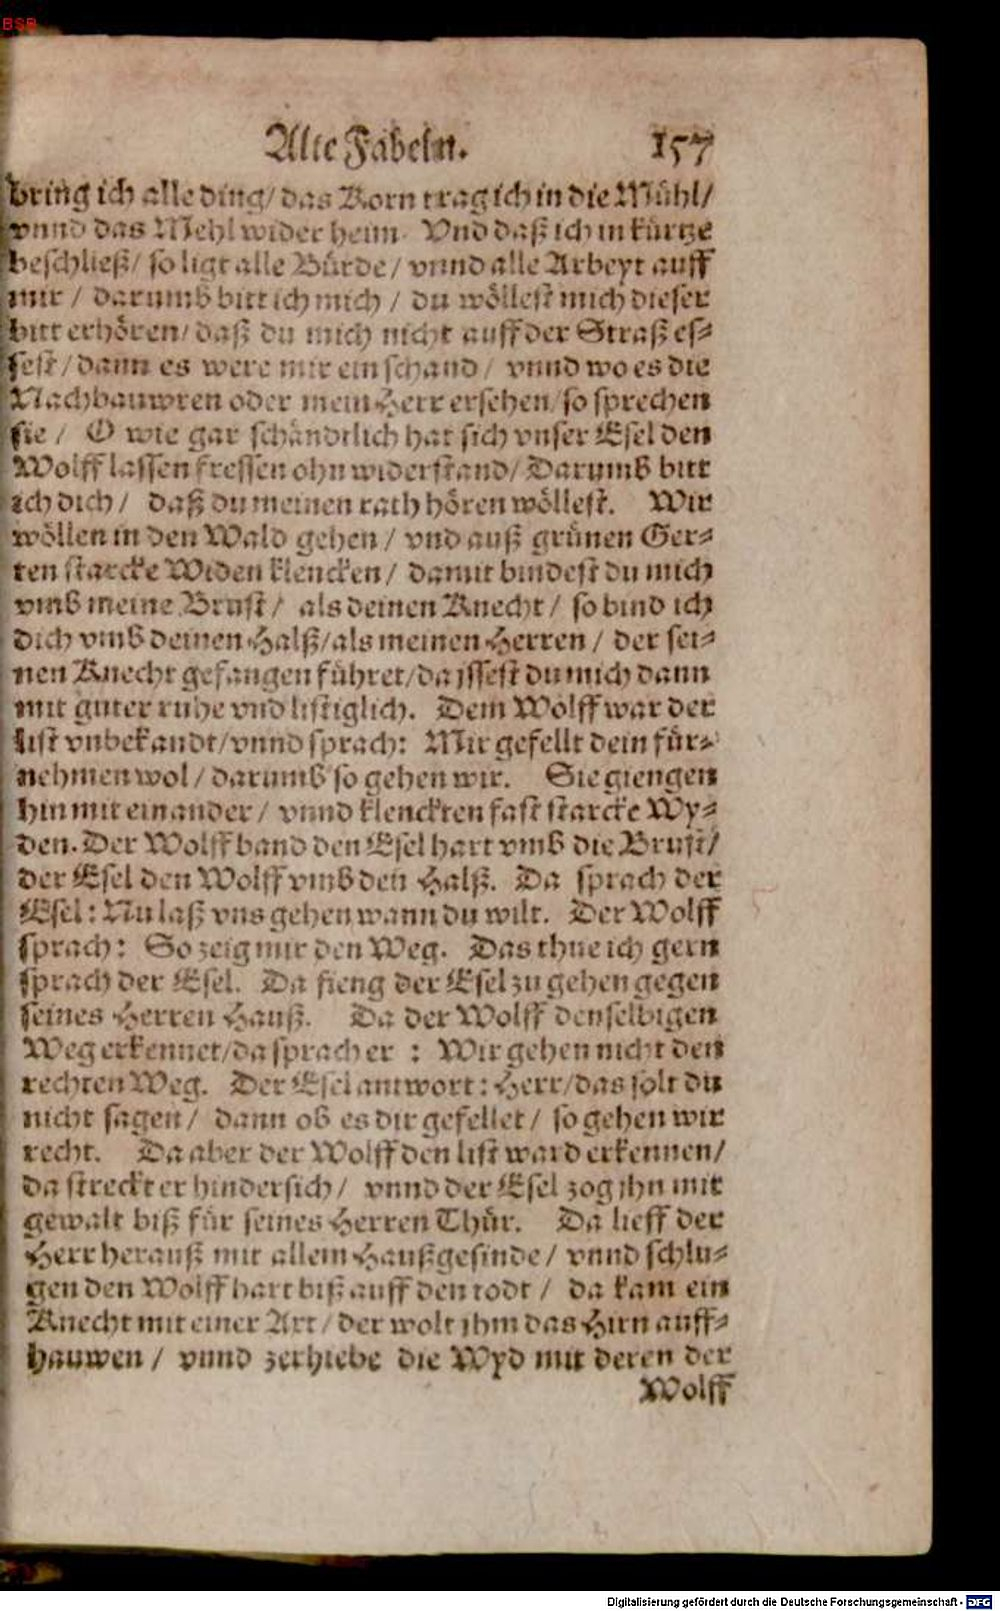 BSB
Alte Fabeln. 157
bring ich alle ding/ das Korn trag ich in die Mühl/
vnnd das Mehl wider heim. Vnd daß ich in kürtze
beschließ/ so ligt alle Bürde/ vnnd alle Arbeyt auff
mir/ darumb bitt ich mich/ du wöllest mich dieser
bitt erhören/ daß du mich nicht auff der Straß es-
sest/ dann es were mir ein schand/ vnnd wo es die
Nachbauwren oder mein Herr ersehen/ so sprechen
sie/ O wie gar schändtlich hat sich vnser Esel den
Wolff lassen fressen ohn widerstand/ Darumb bitt
ich dich/ daß du meinen rath hören wöllest. Wir
wöllen in den Wald gehen/ vnd auß grünen Ger-
ten starcke Widen klencken/ damit bindest du mich
vmb meine Brust/ als deinen Knecht/ so bind ich
dich vmb deinen Halß/ als meinen Herren/ der sei-
nen Knecht gefangen führet/ da issest du mich dann
mit guter ruhe vnd listiglich. Dem Wolff war der
list vnbekandt/ vnnd sprach: Mir gefellt dein für-
nehmen wol/ darumb so gehen wir. Sie giengen
hin mit einander/ vnnd klenckten fast starcke Wy-
den. Der Wolff band den Esel hart vmb die Brust/
der Esel den Wolff vmb den Halß. Da sprach der
Esel: Nu laß vns gehen wann du wilt. Der Wolff
sprach: So zeig mir den Weg. Das thue ich gern
sprach der Esel. Da fieng der Esel zu gehen gegen
seines Herren Hauß. Da der Wolff denselbigen
Weg erkennet/ da sprach er: Wir gehen nicht den
rechten Weg. Der Esel antwort: Herr/ das solt du
nicht sagen/ dann ob es dir gefellet/ so gehen wir
recht. Da aber der Wolff den list ward erkennen/
da streckt er hindersich/ vnnd der Esel zog ihn mit
gewalt biß für seines Herren Thür. Da lieff der
Herr herauß mit allem Haußgesinde/ vnnd schlu-
gen den Wolff hart biß auff den todt/ da kam ein
Knecht mit einer Art/ der wolt ihm das Hirn auff-
hauwen/ vnnd zerhiebe die Wyd mit deren der
Wolff
Digitalisierung gefördert durch die Deutsche Forschungsgemeinschaft - DFG